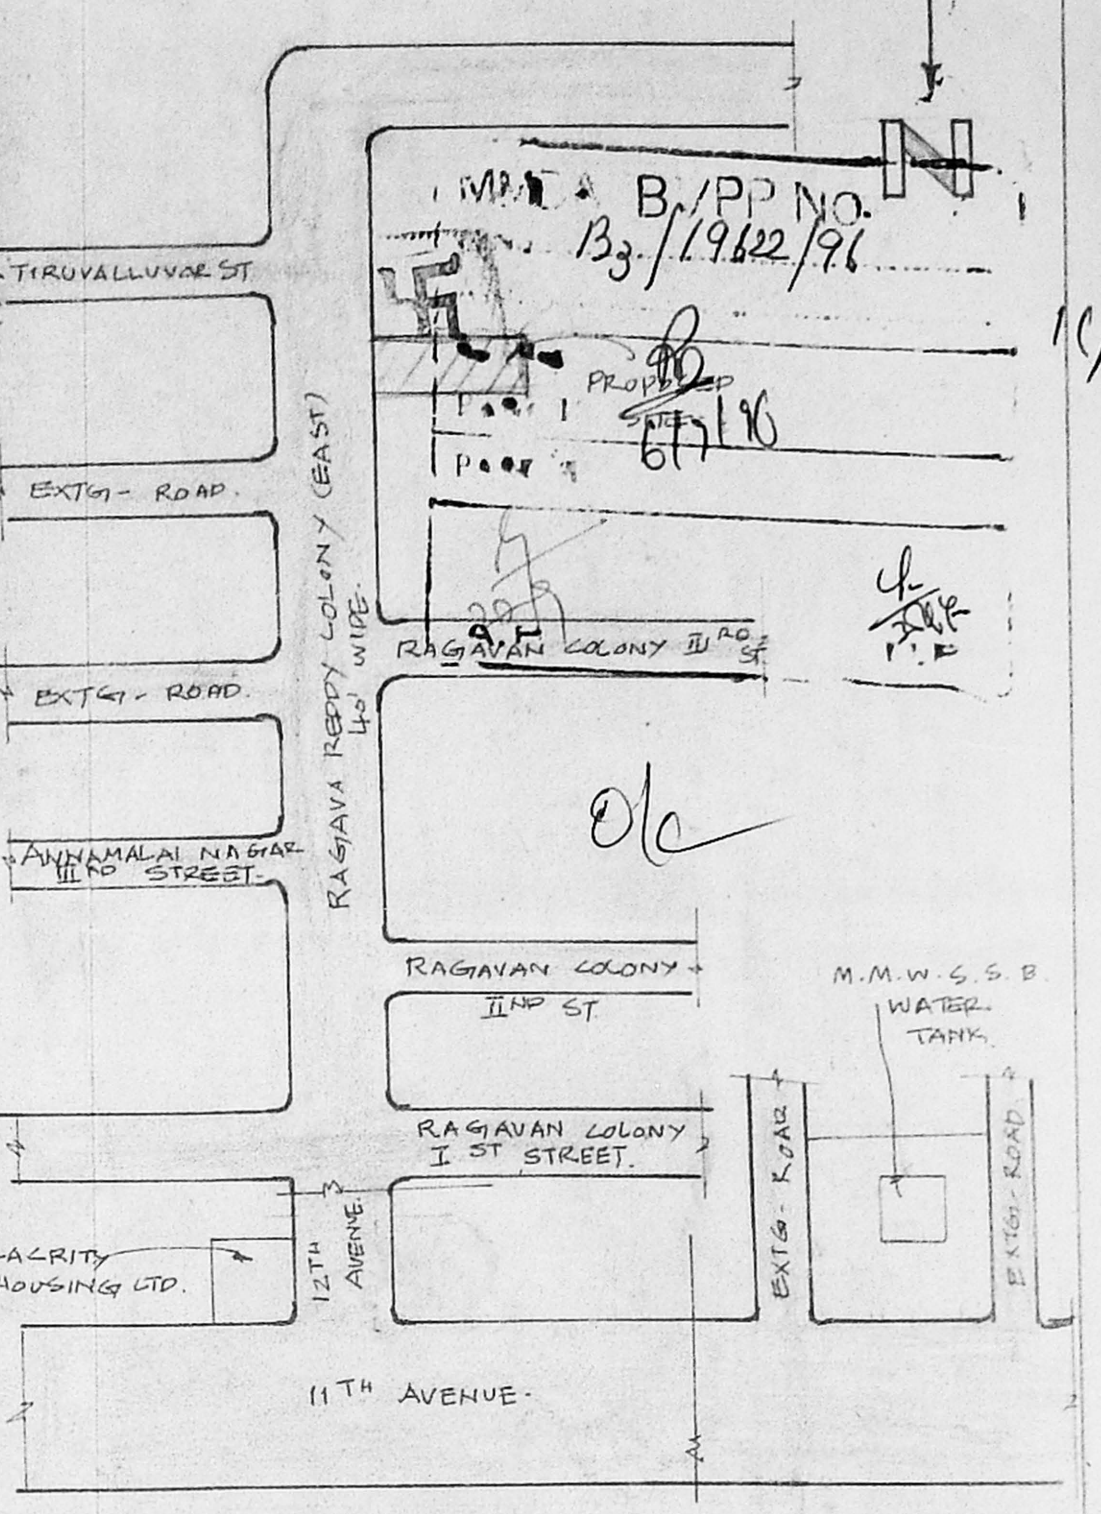 N
MMDA B /PP NO.
B3/19622/96
TIRUVALLUVAR ST
PROPOSED
SITE
6/7/96
EXTG- ROAD.
RAGAVA REDDY COLONY (EAST)
40' WIDE.
RAGAVAN COLONY III RD
ST
EXTG- ROAD.
O/C
ANNAMALAI NAGAR
III RD STREET-
RAGAVAN COLONY
II ND ST
M.M.W.S.S.B.
WATER
TANK.
RAGAVAN COLONY
I ST STREET.
EXTG- ROAD
EXTG- ROAD
12TH
AVENUE.
ACRITY
HOUSING LTD.
11TH AVENUE-